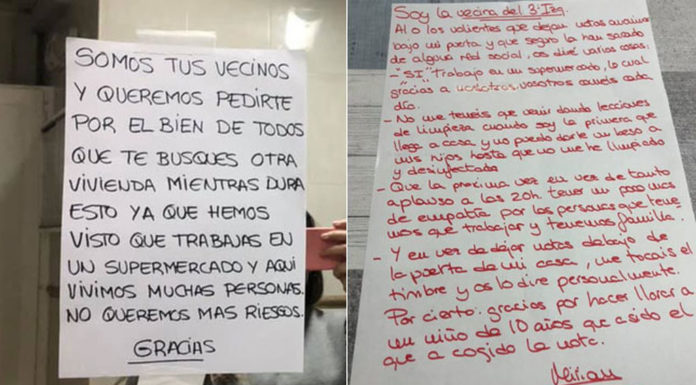 SOMOS TUS VECINOS
Y QUEREMOS PEDIRTE
POR EL BIEN DE TODOS
QUE TE BUSQUES OTRA
VIVIENDA MIENTRAS DURA
ESTO YA QUE HEMOS
VISTO QUE TRABAJAS EN
UN SUPERMERCADO Y AQUI
VIVIMOS MUCHAS PERSONAS.
NO QUEREMOS MAS RIESGOS.
GRACIAS
Soy la vecina del 3º Izq
Al o los valientes que dejan notas
bajo mi puerta y que seguro la han sacado
de alguna red social, os diré varias cosas:
- "SI" Trabajo en un supermercado, lo cual
gracias a nosotros vosotros coméis cada
día.
- No me teneis que venir dando lecciones
de limpieza cuando soy la primera que
llega a casa y no puedo darle un beso a
mis hijos hasta que no me he limpiado
y desinfectado
- Que la proxima vez en vez de tanto
aplauso a las 20h. tener un poco mas
de empatia por las personas que tene
mos que trabajar y tenemos familia.
- Y en vez de dejar notas debajo de
la puerta de mi casa, me tocais el
timbre y os lo dire personalmente.
Por cierto: gracias por hacer llorar a
un niño de 10 años que a sido el
que a cogido la nota.
Mirian